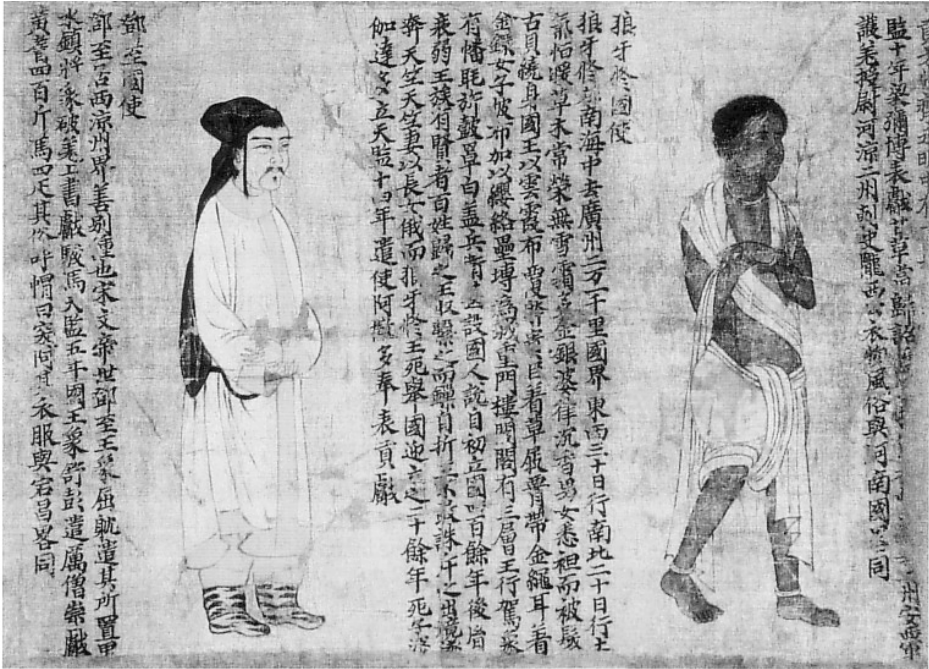 監十年梁彌博表獻甘草當歸詔
護羌校尉河涼二州刺史隴西公衣物風俗與河南國同
州安西軍
狼牙脩國使
狼牙脩南海中去廣州二万一千里國界東西三十日行南北二十日行土
氣恒暖草木常榮無雪霜多金銀婆律沉香男女悉袒而被髮
古貝繞身國王以雲霞布覆貴臣着草屐要帶金繩耳着
金鐶女子披布加以纓絡壘塼為城重門樓門閣有三層王行駕象
有幡毦旂鼓罩白盖兵衛設國人說自初立國四百餘年後嗣
衰弱王族有賢者百姓歸之王收繫之而鏁自折王不敢誅斥之出境
奔天竺天竺妻以長女俄而狼牙脩王死舉國迎立之二十餘年死子婆
伽達多立天監十四年遣使阿撤多奉表貢獻
鄧至國使
鄧至居西涼州界羌別種也宋文帝世鄧至王象屈耽遣其所置里
水鎮將象破羌上書獻駿馬天監五年國王象舒彭遣厲僧崇獻
黃耆四百斤馬四疋其俗呼帽曰突何其衣服與宕昌畧同